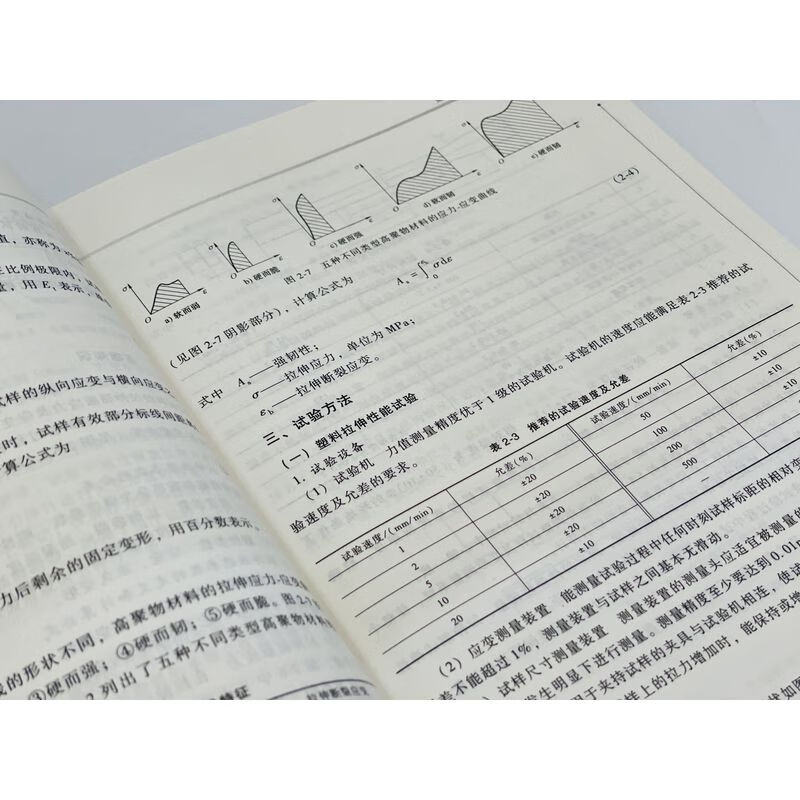 值，亦称为
在比例极限内，
量，用 E_t 表示，
试样的纵向应变与横向应变
时，试样有效部分标线间距
计算公式为
力后剩余的固定变形，用百分数表示
线的形状不同，高聚物材料的拉伸应力-应变
③硬而强；④硬而韧；⑤硬而脆。图 2-7
2 列出了五种不同类型高聚物材料
特征
拉伸断裂应变
σ
O
ε
a) 软而弱
σ
O
ε
b) 硬而脆
σ
O
ε
c) 硬而强
σ
O
ε
d) 软而韧
σ
O
ε
e) 硬而韧
图 2-7 五种不同类型高聚物材料的应力-应变曲线
(见图 2-7 阴影部分)，计算公式为
(2-4)
式中 A_s——强韧性；
σ——拉伸应力，单位为 MPa；
ε_b——拉伸断裂应变。
三、试验方法
（一）塑料拉伸性能试验
1. 试验设备
(1) 试验机 力值测量精度优于 1 级的试验机。试验机的速度应能满足表 2-3 推荐的试
验速度及允差的要求。
表 2-3 推荐的试验速度及允差
试验速度/(mm/min) 允差(%) 试验速度/(mm/min) 允差(%)
1 ±20 50 ±10
2 ±20 100 ±10
5 ±20 200 ±10
10 ±20 500 ±10
20 ±10 —
(2) 应变测量装置 能测量试验过程中任何时刻试样标距的相对变
差不能超过 1%，测量装置与试样之间基本无滑动。
试样尺寸测量装置 测量装置的测量头应适宜被测量的
发生明显下进行测量。测量精度至少要达到 0.01
用于夹持试样的夹具与试验机相连，使试
样上的拉力增加时，能保持或增
状如图